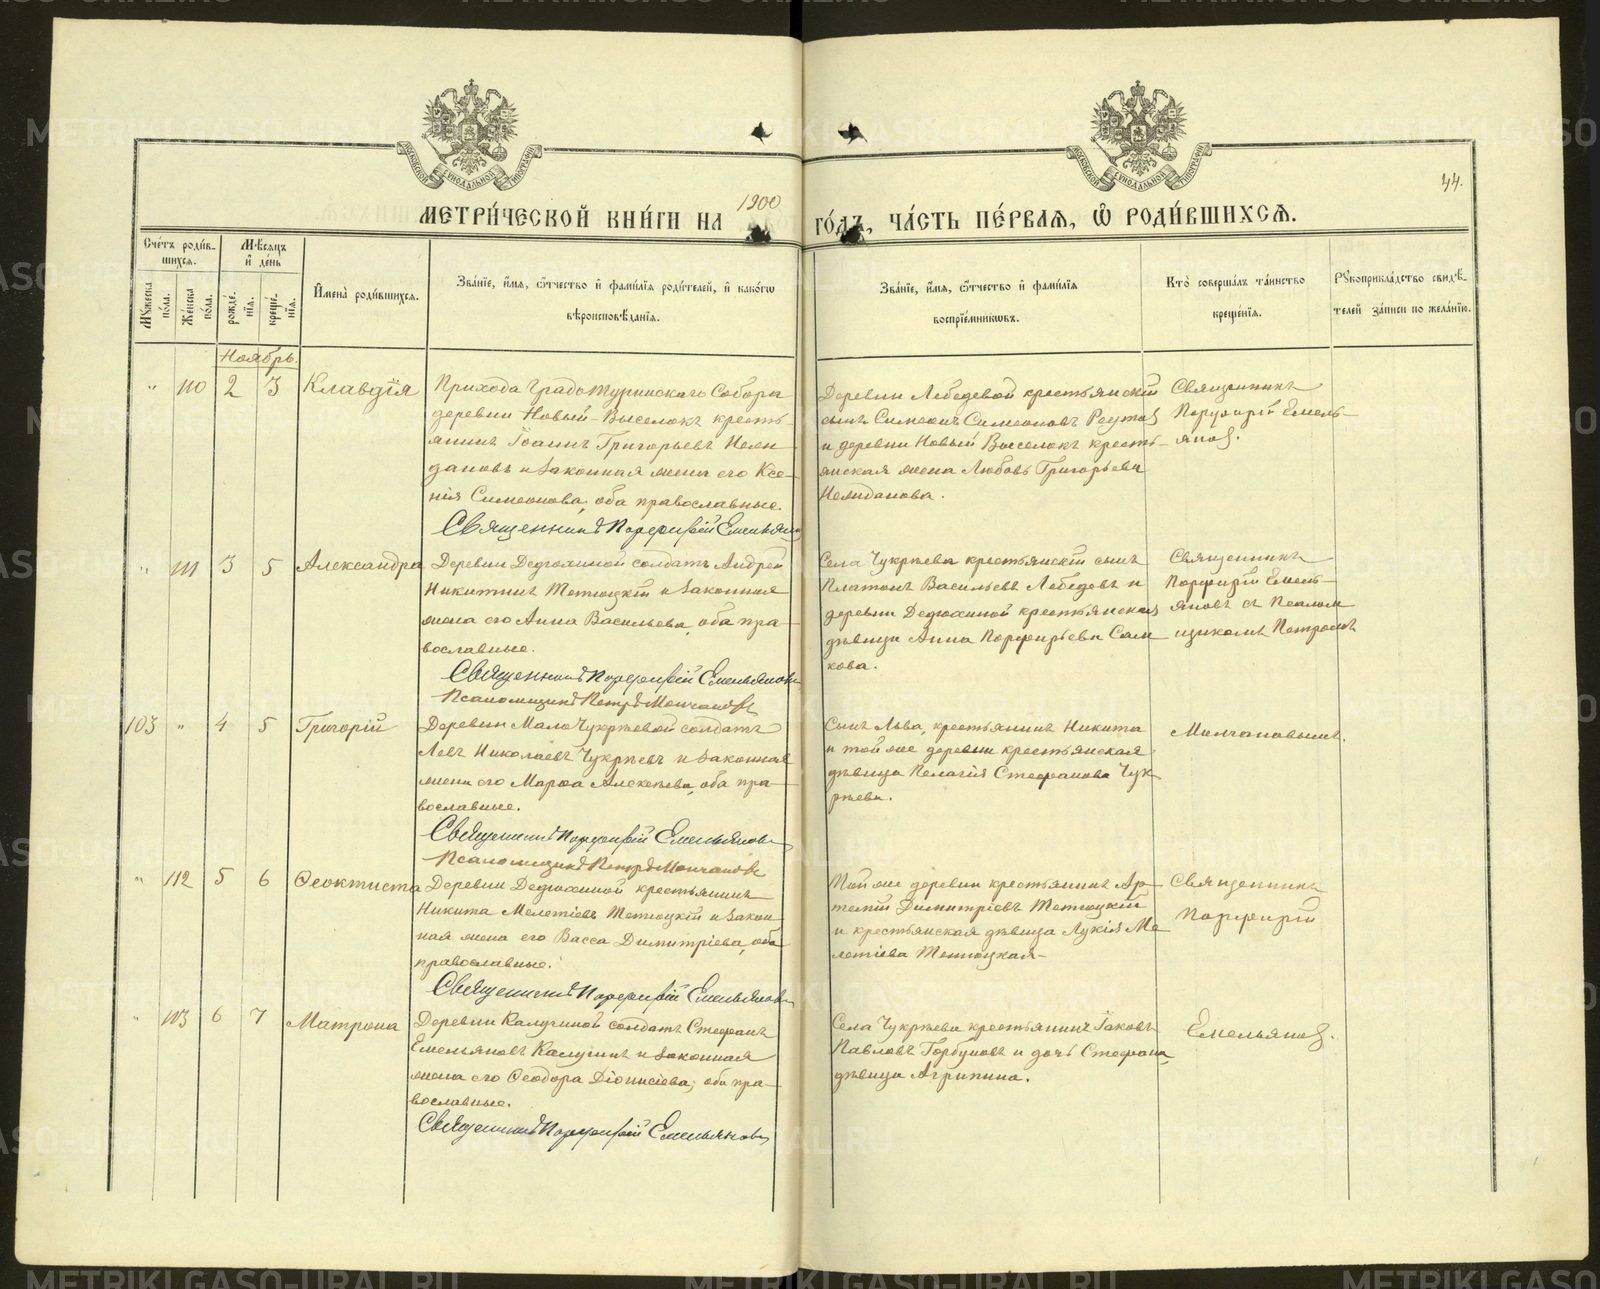 44.
МЕТРИ́ЧЕСКОЙ КНИ́ГИ НА 1900 ГО́ДЪ, ЧА́СТЬ ПЕ́РВАЯ, Ѽ РОДИ́ВШИХСЯ.
Сче́тъ роди́в-
шихся.
Мꙋ́жеска по́ла.
Же́нска по́ла.
Мѣ́сяцъ и҆ де́нь
рожде́нїя.
креще́нїя.
И҆мена̀ роди́вшихся.
Зва́нїе, и҆́мя, ѻ҆́тчество и҆ фами́лїя роди́телей, и҆ како́гѡ
вѣроисповѣ́данїя.
Зва́нїе, и҆́мя, ѻ҆́тчество и҆ фами́лїя
воспрїе́мникѡвъ.
Кто̀ соверша́лъ та́инство
креще́нїя.
Рꙋкоприкла́дство свидѣ́-
телей за́писи по жела́нїю.
Ноябрь.
" 110 2 3 Клавдія
Прихода Градо Туринскаго Собора
деревни Новый-Выселокъ кресть-
янинъ Іоаннъ Григорьевъ Нели-
дановъ и законная жена его Ксе-
нія Симеонова, оба православные.
Священникъ Порфирій Емельянов
Деревни Лебедевой крестьянскій
сынъ Симеонъ Симеоновъ Реутов
и деревни Новый Выселокъ кресть-
янская жена Любовь Григорьева
Нелиданова.
Священникъ
Порфирій Емель-
янов.
" 111 3 5 Александра
Деревни Дедюхиной солдатъ Андрей
Никитинъ Тетюцкій и законная
жена его Анна Васильева, оба пра-
вославные.
Священникъ Порфирій Емельяновъ
Псаломщикъ Петръ Молчановъ
Села Чукреева крестьянскій сынъ
Платонъ Васильевъ Лебедевъ и
деревни Дедюхиной крестьянская
дѣвица Анна Порфирьева Сам-
кова.
Священникъ
Порфирій Емель-
яновъ съ Псалом-
щикомъ Петромъ
103 " 4 5 Григорій
Деревни Мало Чукреевой солдатъ
Левъ Николаевъ Чукреевъ и законная
жена его Марѳа Алексѣева, оба пра-
вославные.
Священникъ Порфирій Емельяновъ
Псаломщикъ Петръ Молчановъ
Сынъ Льва, крестьянинъ Никита
и той же деревни крестьянская
дѣвица Пелагія Стефанова Чук-
реева.
Молчановымъ.
" 112 5 6 Ѳеоктиста
Деревни Дедюхиной крестьянинъ
Никита Мелетіевъ Тетюцкій и закон-
ная жена его Васса Димитріева, оба
православные.
Священникъ Порфирій Емельяновъ
Той же деревни крестьянинъ Ар-
темій Димитріевъ Тетюцкій
и крестьянская дѣвица Лукія Ме-
летіева Тетюцкая-
Священникъ
Порфирій
" 113 6 7 Матрона
Деревни Калугиной солдатъ Стефанъ
Емельяновъ Калугинъ и законная
жена его Ѳеодора Діонисіева, оба пра-
вославные.
Священникъ Порфирій Емельяновъ
Села Чукреева крестьянинъ Іаковъ
Павловъ Горбуновъ и дочь Стефана,
дѣвица Агрипина.
Емельянов.
METRIKI.GASO-URAL.RU